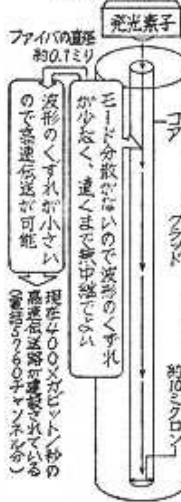 発光素子
ファイバの直径
約0.1ミリ
コア
クラッド
約10ミクロン
モード分散がないので波形のくずれ
が少なく、遠くまで無中継でよい
波形のくずれが小さい
ので高速伝送が可能
現在400メガビット/秒の
高速伝送路が建設されている
(電話5760チャンネル分)